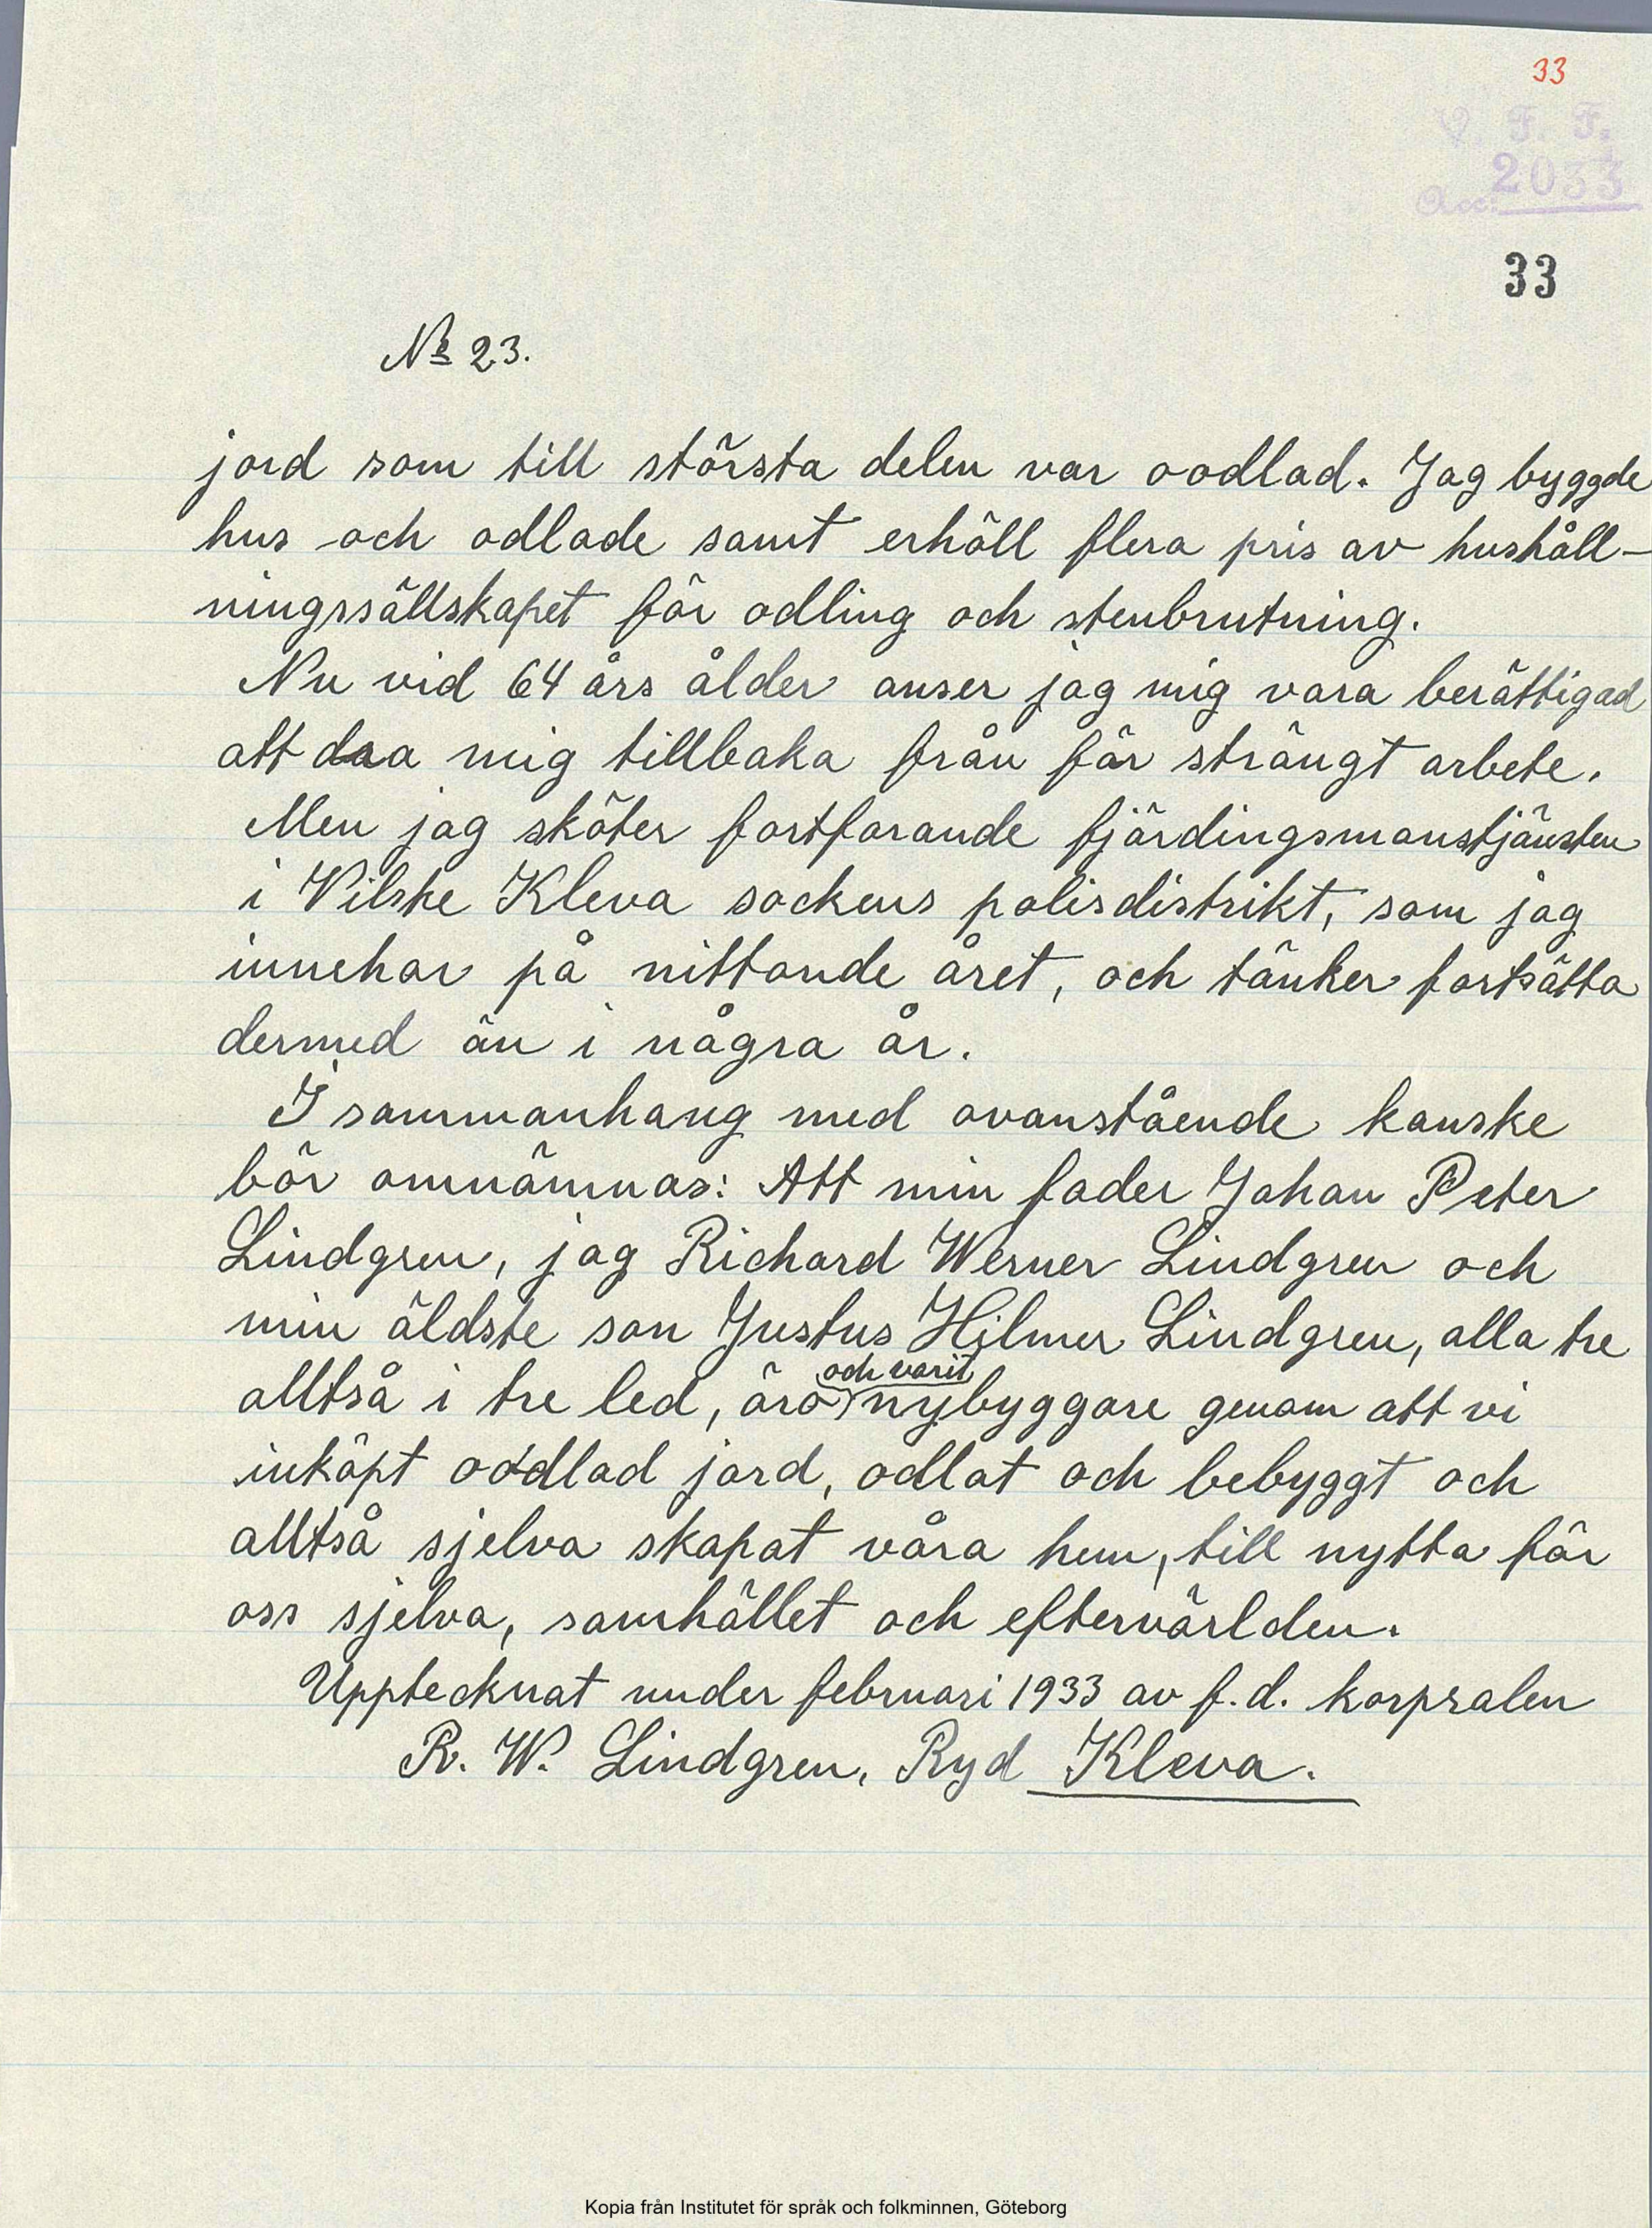 33
V. F. F.
Acc: 2033
33
No 23.
jord som till största delen var oodlad. Jag byggde
hus och odlade samt erhöll flera pris av hushåll-
ningssällskapet för odling och stenbrutning.
Nu vid 64 års ålder anser jag mig vara berättigad
att draa mig tillbaka från för strängt arbete.
Men jag sköter fortfarande fjärdingsmanstjänsten
i Vilske Kleva sockens polisdistrikt, som jag
innehar på nittonde året, och tänker fortsätta
dermed än i några år.
I sammanhang med ovanstående kanske
bör omnämnas: Att min fader Johan Peter
Lindgren, jag Richard Werner Lindgren och
min äldste son Justus Hilmer Lindgren, alla tre
alltså i tre led, äro och varit nybyggare genom att vi
inköpt oodlad jord, odlat och bebyggt och
alltså sjelva skapat våra hem, till nytta för
oss sjelva, samhället och eftervärlden.
Upptecknat under februari 1933 av f.d. korpralen
R. W. Lindgren, Ryd Kleva.
Kopia från Institutet för språk och folkminnen, Göteborg